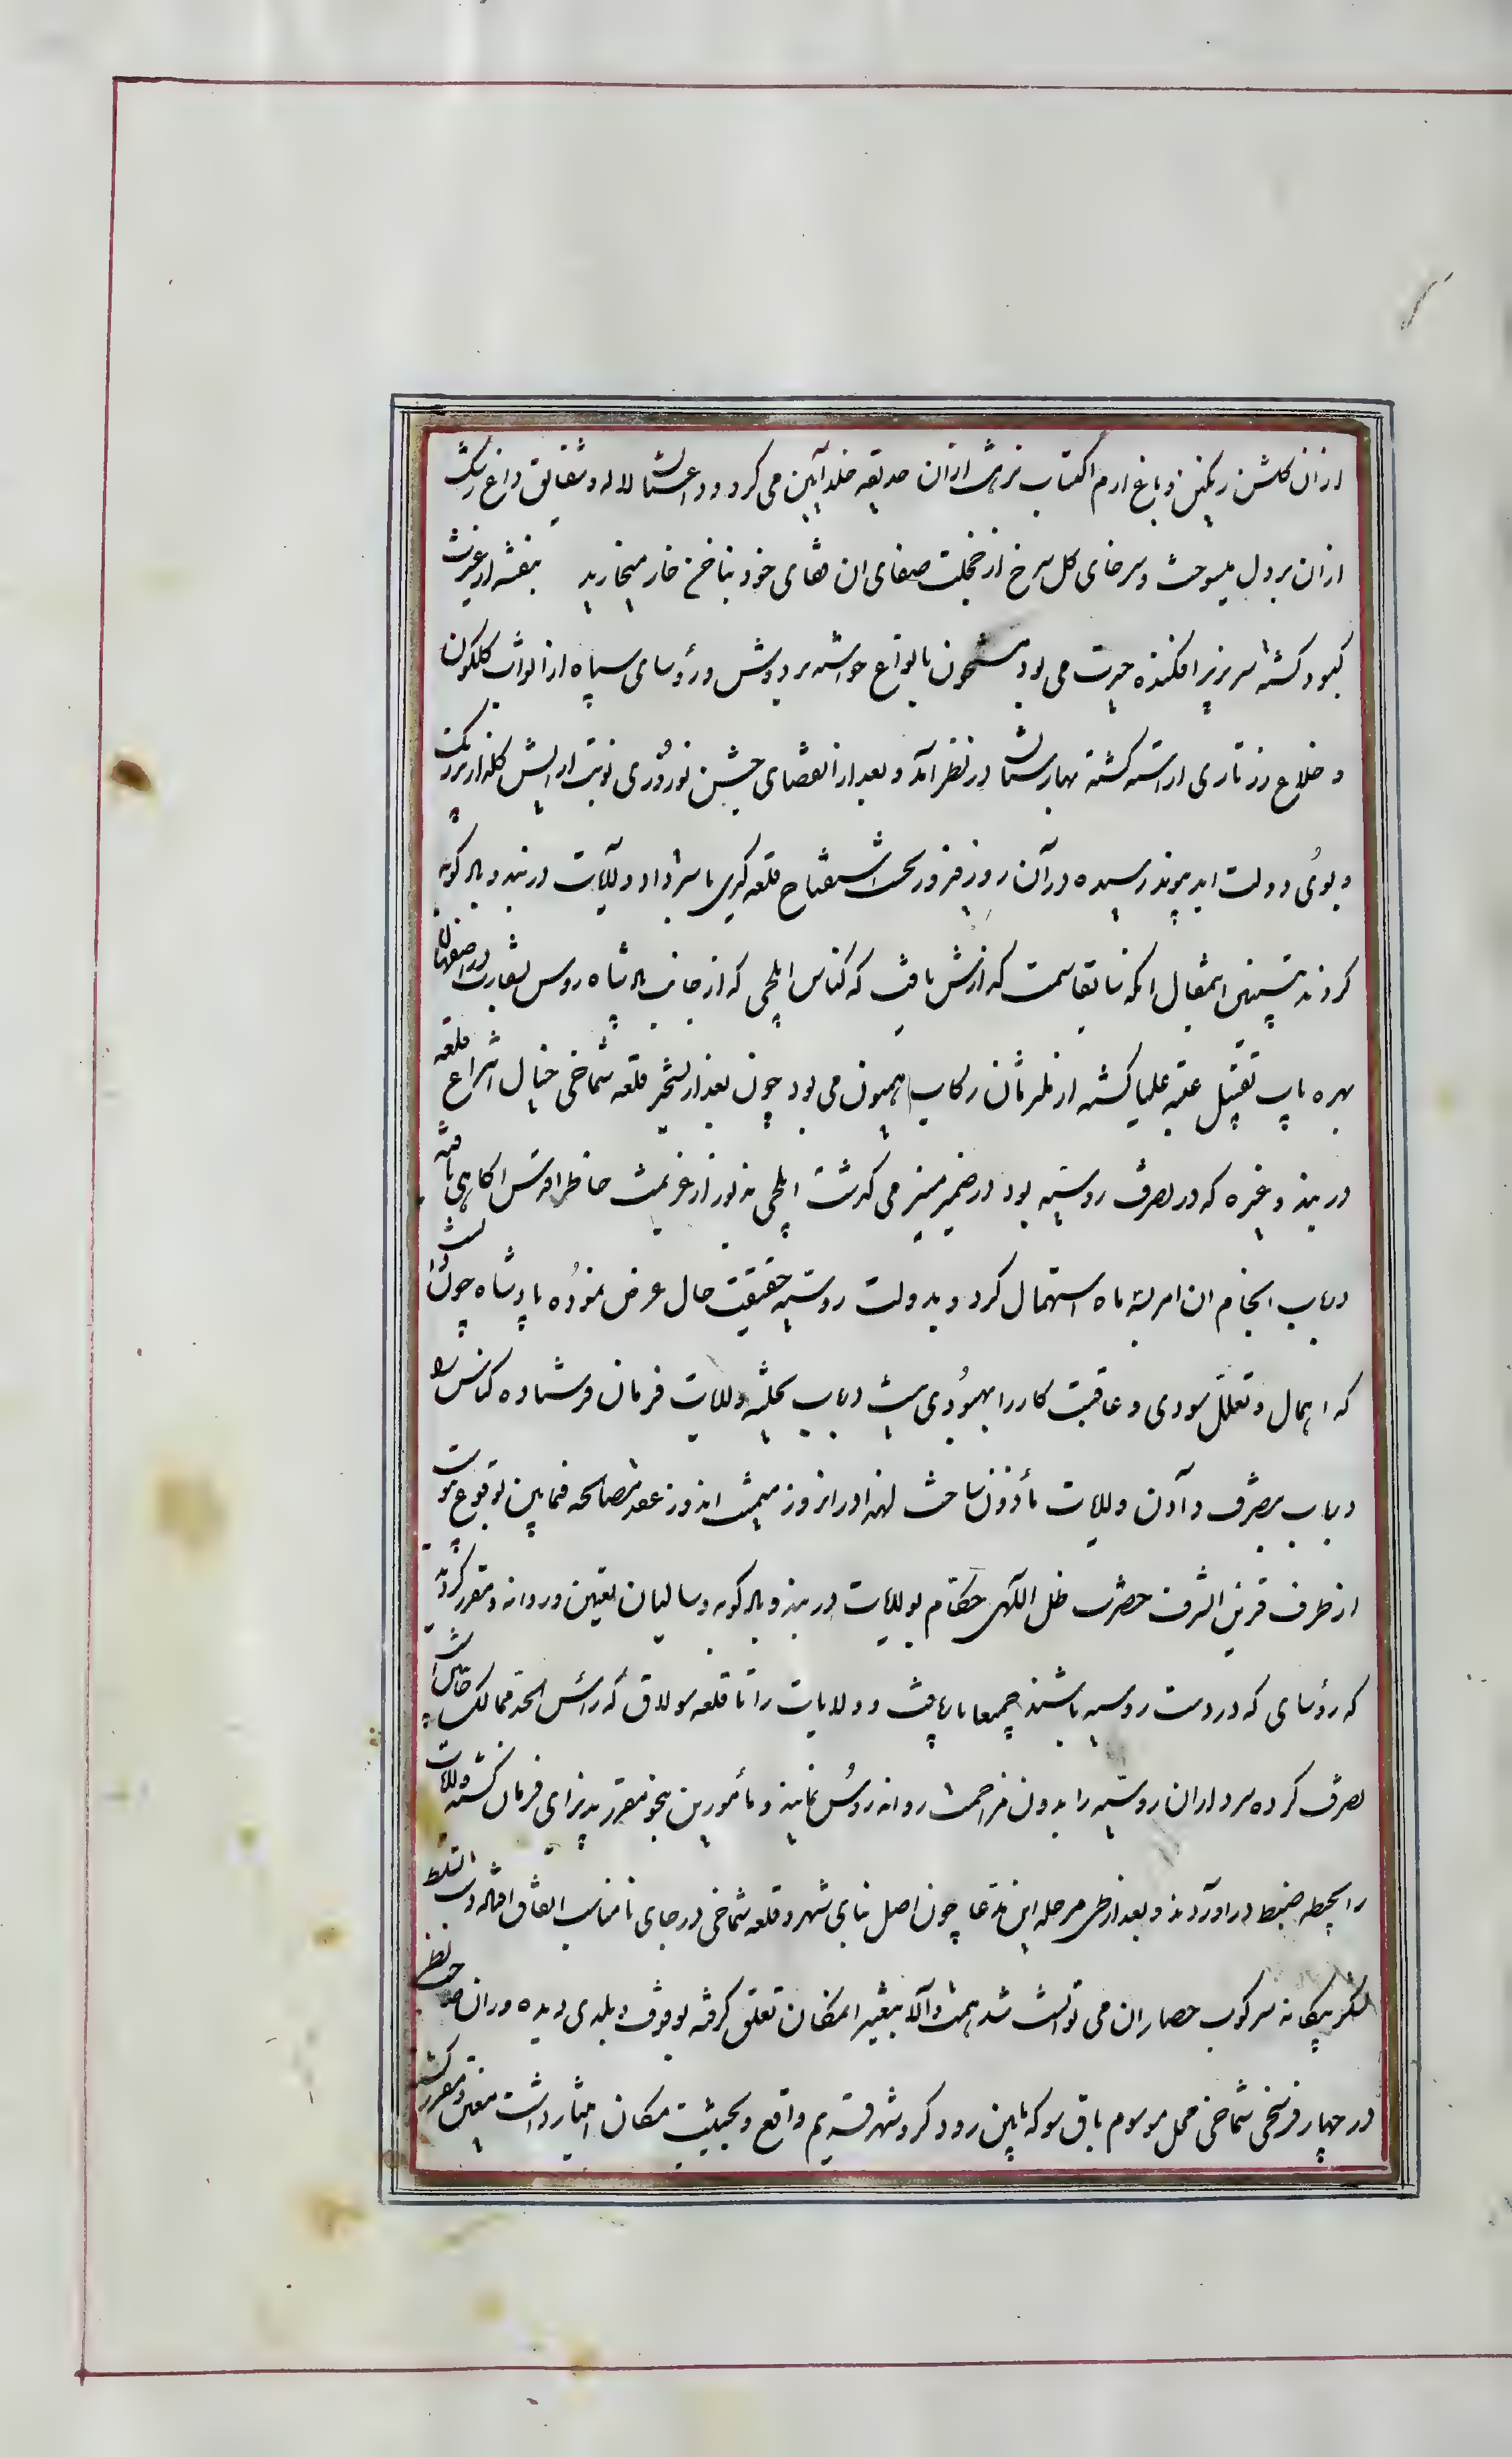 ازان گلشن رنگین و باغ ارم اکتساب نزهت ازان حدیقه خلد آیین می کرد و داغستان لاله و شقایق داغ رشک
ازان بر دل میسوخت و سرخای گل سرخ از خجلت صفای ان قفای خود بناخن خار میخارید بنفشه از غیرت
کبود گشته سر بزیر افکنده حیرت می بود مشحون بانواع خواسته بر دوش و رؤسای سپاه از اثواب گلگون
و خلاع زرتاری اراسته گشته بهارستان در نظر آمد و بعد از انقضای جشن نوروزی نوبت ارایش گلزار برنگ
و بوی دولت ابد پیوند رسیده در آن روز فیروز بحث استفتاح قلعه گری با سرداد ولایات دربند و بادکوبه
کردند تبیین اینمقال انکه سابقا سمت گزارش یافت که کناس ایلچی که از جانب پادشاه روس بسفارت در اصفهان
بهره یاب تقبیل عتبه علیا گشته از ملتزمان رکاب همیون می بود چون بعد از تسخیر قلعه شماخی خیال انتزاع قلعه
دربند و غیره که در تصرف روسیه بود در ضمیر منیر می گذشت ایلچی مذبور از عزیمت خاطر اقدس اگاهی یافته
در باب انجام ان امر سه ماه استمهال کرد و بدولت روسیه حقیقت حال عرض نموده پادشاه چون دانست
که اهمال و تعلل سودی و عاقبت کار را بهبودی نیست در باب تخلیه ولایات فرمان فرستاده کناس را
در باب بتصرف دادن ولایات مأذون ساخت لهذا در انروز میمنت اندوز عقد مصالحه فیمابین بوقوع پیوست
از طرف قرین الشرف حضرت ظل اللهی حکام بولایات دربند و بادکوبه و سالیان تعیین و روانه و مقرر گردید
که رؤسای که در دست روسیه باشند جمعا باریافت و ولایات را تا قلعه سولاق که رأس الحد ممالک خاقان است
تصرف کرده سرداران روسیه را بدون مزاحمت روانه روس نمایند و مأمورین بنحو مقرر پذیرای فرمان گشته ولایات
را بحیطه ضبط دراوردند و بعد از طی مرحله این مدعا چون اصل بنای شهر و قلعه شماخی در جای نامناسب اتفاق افتاده و تسلط
لشکر بیگانه سرکوب حصار ان می توانست شد همت والا بتغییر امکان تعلق گرفته بوقوف و بلدی دیده وران
در چهار فرسخی شماخی محل موسوم باق سو که مابین رود کر و شهر قدیم واقع و بحیثیت مکان امتیاز داشت معین و مقرر گشته